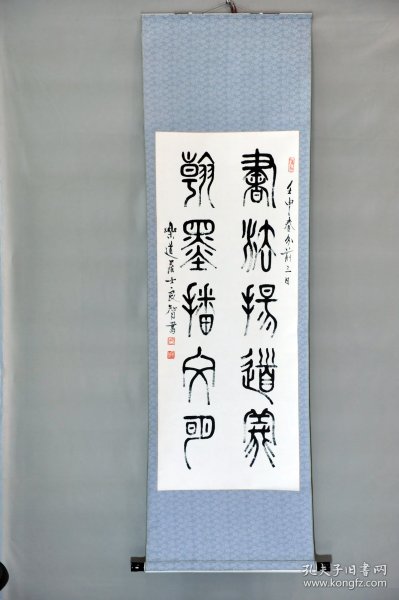 壬申春分前三日
書法揚道義
翰墨播文明
樂道居士良智書
孔夫子旧書网
www.kongfz.com